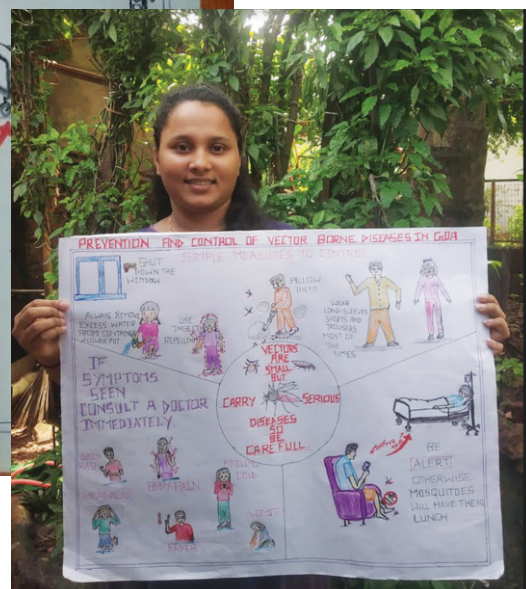 PREVENTION AND CONTROL OF VECTOR BORNE DISEASES IN GOA
SIMPLE MEASURES TO CONTROL
SHUT
DOWN THE
WINDOW
ALWAYS REMOVE
EXCESS WATER
FROM CONTAINER
FLOWER POT
USE
INSECT
REPELLENT
THEM
WEAR
LONG SLEEVES
SHIRTS AND
TROUSERS
MOST OF
THE
TIMES
VECTORS
ARE
SMALL
BUT
CARRY SERIOUS
DISEASES
SO
BE
CAREFULL
IF
SYMPTOMS
SEEN
CONSULT A DOCTOR
IMMEDIATELY
SKIN
RASH
BODY PAIN
FEELING
COLD
HEADACHE
FEVER
VOMIT
BE
ALERT
OTHERWISE
MOSQUITOES
WILL HAVE THEIR
LUNCH